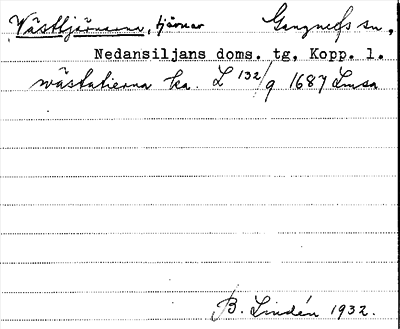 Västtjärnarna, tjärnar Gangnefs sn,
Nedansiljans doms. tg, Kopp. l.
wästatierna ka. L 132/9 1687 Lmsa
B. Lindén 1932.